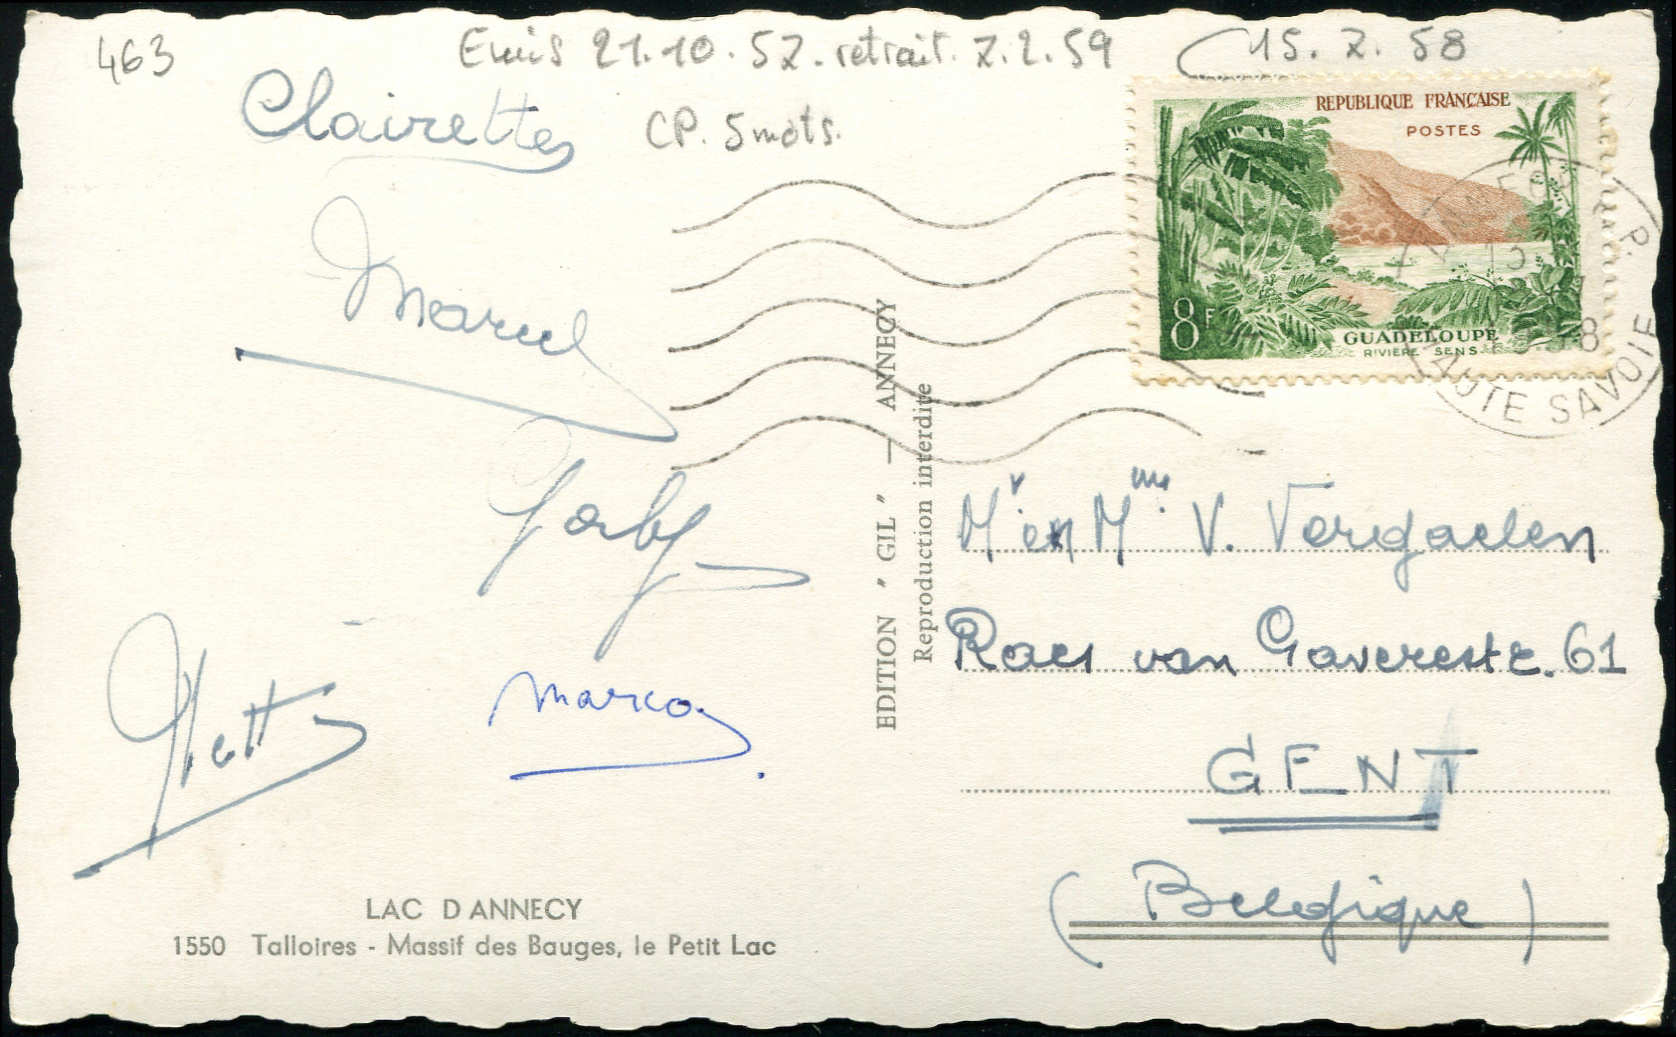 463
Emis 21.10.57. retrait. 7.2.59
15. 7. 58
Clairette
CP. 5 mots.
REPUBLIQUE FRANÇAISE
POSTES
8F
GUADELOUPE
RIVIÈRE SENS
15
1958
HAUTE SAVOIE
Marcel
Gaby
Netty
EDITION " GIL " — ANNECY
Reproduction interdite
Mr en Mme V. Vergaelen
Raes van Gaverestr. 61
GENT
(Belgique)
LAC D'ANNECY
1550 Talloires - Massif des Bauges, le Petit Lac